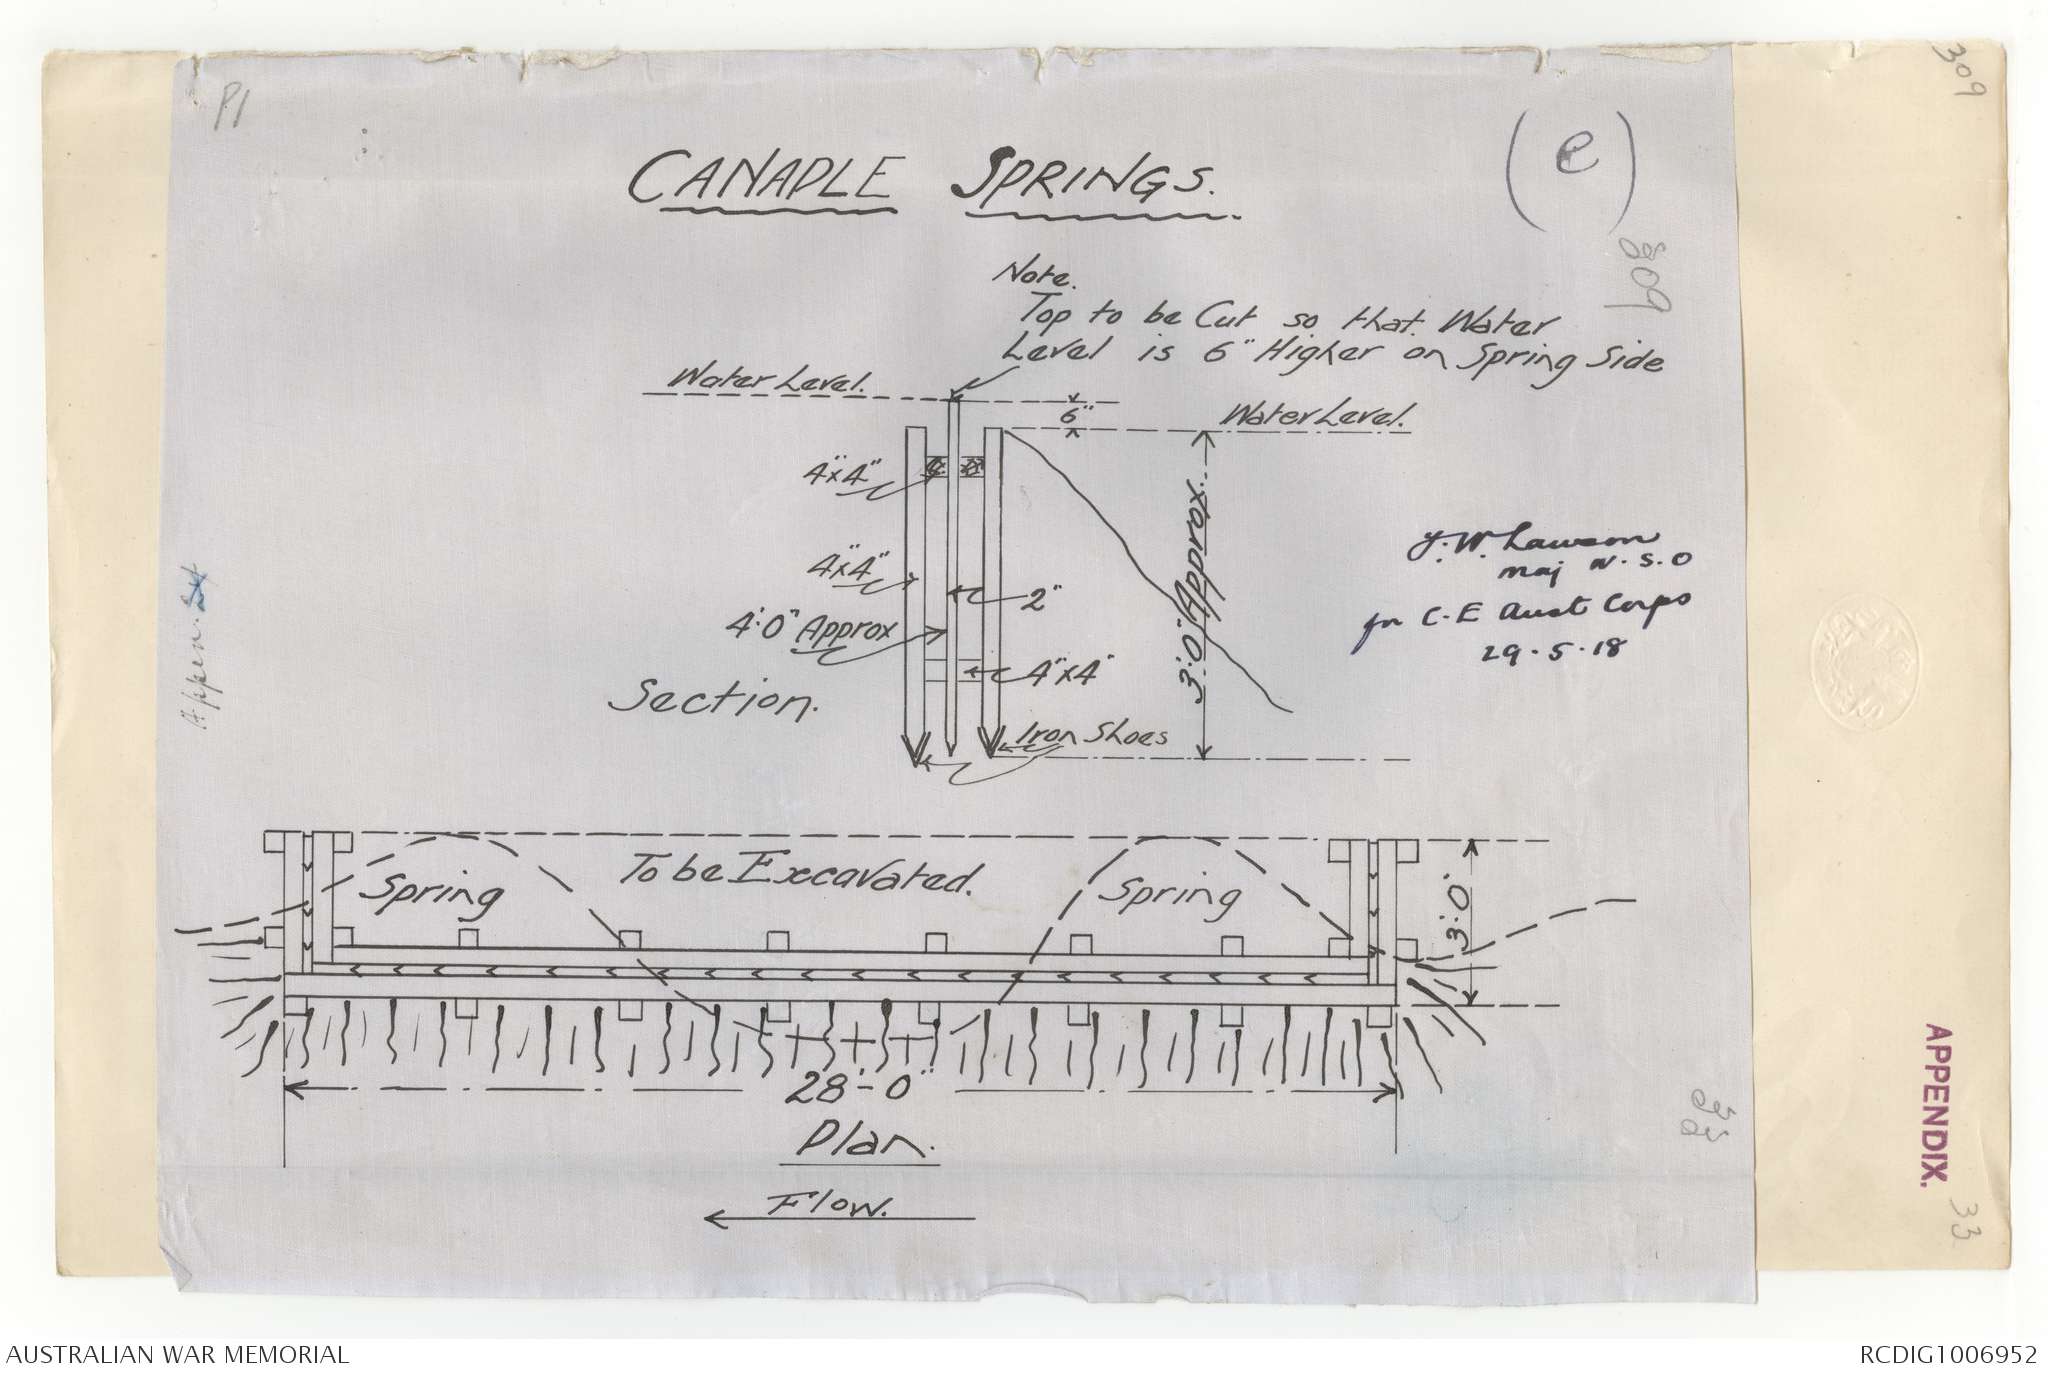 P1
309
(e)
CANAPLE SPRINGS.
309
Note.
Top to be Cut so that Water
Level is 6" Higher on Spring Side
Water Level.
6"
Water Level.
4"x4"
4"x4"
2"
4'.0" Approx
4"x4"
3'.0" Approx.
Section.
Iron Shoes
J. W. Lawson
Maj W.S.O
for C.E Aust Corps
29.5.18
Appen.
To be Excavated.
Spring
Spring
3'.0"
28'-0"
Plan.
Flow.
33
APPENDIX.
33
AUSTRALIAN WAR MEMORIAL
RCDIG1006952